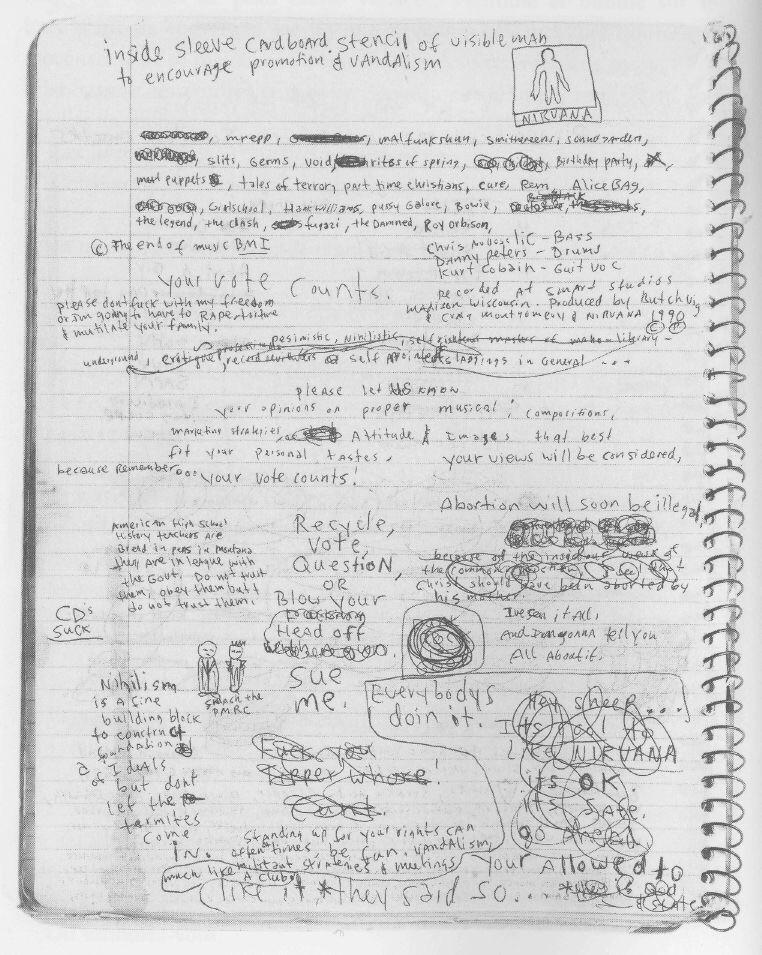 inside sleeve cardboard stencil of visible man
to encourage promotion & vandalism
NIRVANA
, mrepp, , malfunkshun, smithereens, soundgarden,
, slits, Germs, void, rites of spring, , Birthday party, ,
meat puppets , tales of terror, part time christians, cure, Rem, Alice BAG,
, Girlschool, Hank williams, pussy Galore, Bowie, BLACK
the legend, the clash, fugazi, the Damned, Roy orbison,
© The end of music BMI
Chris lic - BASS
DANNY peters - Drums
Kurt Cobain - Guit voc
recorded At smart studios
madison wisconsin. Produced by Butch vig
& Craig montgomery & NIRVANA 1990
© ℗
your vote counts.
please dont fuck with my freedom
or im going to have to RAPE, torture
& mutilate your family.
pesimistic, Nihilistic, self
underground, record & self slappings in General ...
please let US know
your opinions on proper musical; compositions,
marketing strategies, Attitude & Images that best
fit your personal tastes, your views will be considered,
because remember ... your vote counts!
Abortion will soon be illegal
because of the
the common
Christ should have been aborted by
his mother.
American High School
History teachers are
Bred in pens in montana
they are in league with
the Govt. Do not trust
them, obey them but
do not trust them.
Recycle,
Vote,
QuestioN,
OR
BLow your
Head off
sue
me.
CD's
SUCK
Ive seen it All,
And Im gonna tell you
All About it.
smash the
P.M.R.C
Nihilism
is a fine
building block
to construct
foundation
of Ideals
but dont
let the
termites
come
in.
Everybodys
doin it.
Hey sheep....
Its cool to
like NIRVANA
its OK.
its safe.
go Ahead
your Allowed to
like it, *they said so...
Fuck you
Tipper whore!
Cunt.
Standing up for your rights can
often times be fun. vandalism
much like militant & meetings
A club
* God
& state